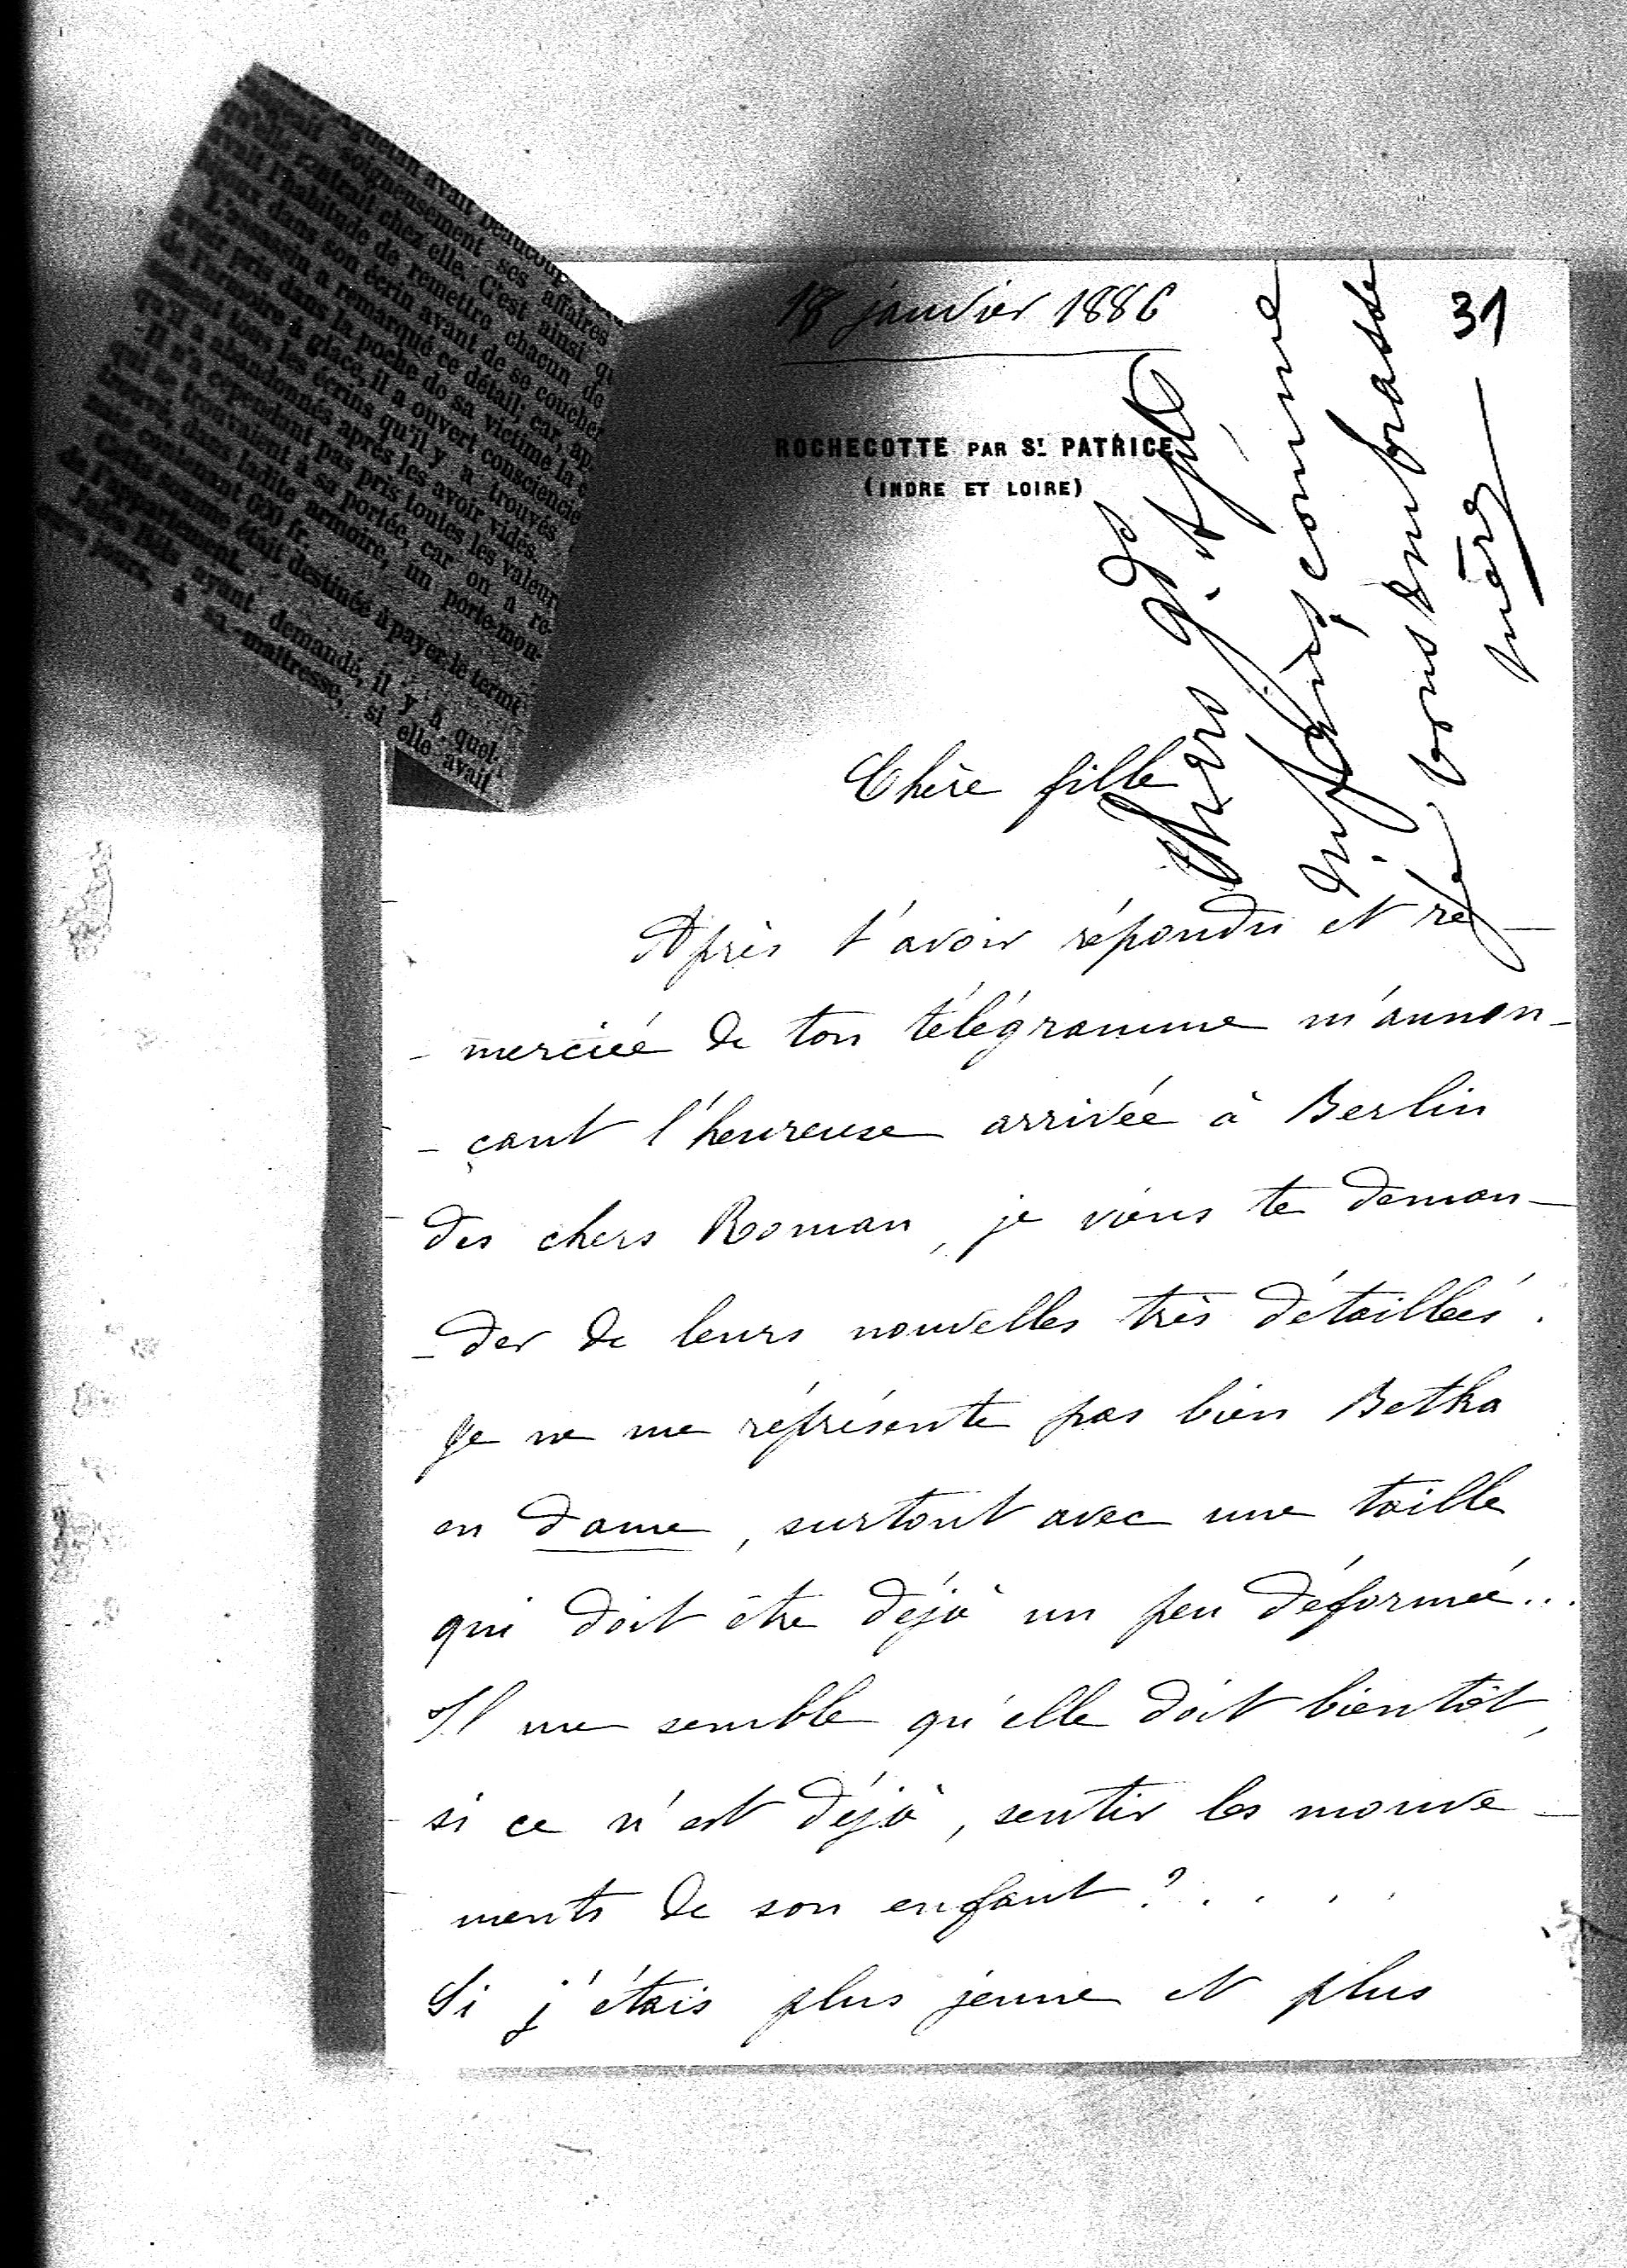 soigneusement ses affaires
rentrait chez elle. C'est ainsi
l'habitude de remettre chacun de
dans son écrin avant de se coucher
L'assassin a remarqué ce détail; car,
pris dans la poche de sa victime la
de l'armoire à glace, il a ouvert
tous les écrins qu'il y a trouvés
qu'il a abandonnés après les avoir vidés.
Il n'a cependant pas pris toutes les valeurs
qui se trouvaient à sa portée, car on a re-
trouvé, dans ladite armoire, un porte-mon-
contenant
Cette somme était destinée à payer le terme
de l'appartement.
ayant demandé, il y a quel-
jours, à sa maîtresse, si elle avait
18 janvier 1886
31
ROCHECOTTE PAR ST PATRICE
(INDRE ET LOIRE)
Chère fille
Après t'avoir répondu et re-
- merciée de ton télégramme m'annon-
- çant l'heureuse arrivée à Berlin
des chers Roman, je viens te deman-
- der de leurs nouvelles très détaillées.
Je ne me réprésente pas bien Betka
en dame, surtout avec une taille
qui doit être déjà un peu déformée...
Il me semble qu'elle doit bientôt,
si ce n'est déjà, sentir les mouve-
ments de son enfant?....
Si j'étais plus jeune et plus
chers
comme
je vous embrasse
mère